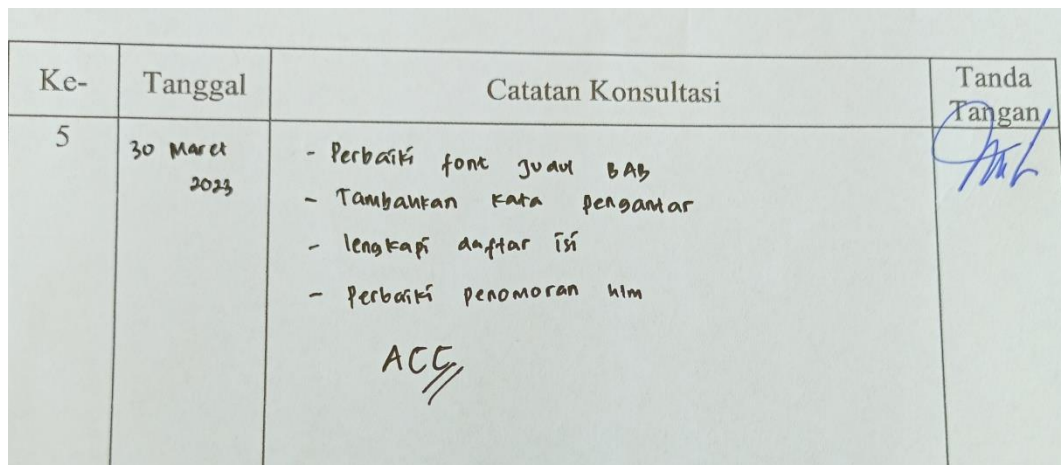 Ke- Tanggal Catatan Konsultasi Tanda
Tangan
5 30 Maret
2023
- Perbaiki font judul BAB
- Tambahkan kata pengantar
- lengkapi daftar isi
- Perbaiki penomoran hlm
ACC